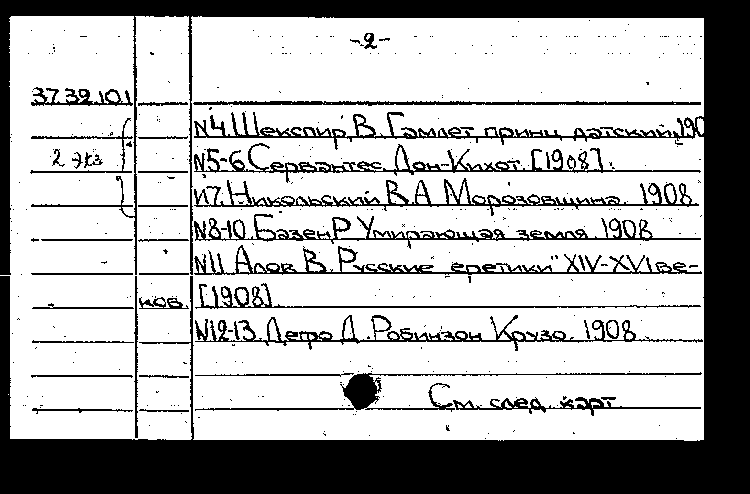 -2-
37.39.10.1
N4. Шекспир, В. Гамлет, принц датский, 190
2 экз N5-6. Сервантес. Дон-Кихот. [1908].
N7. Никольский, В.А Морозовщина. 1908
N8-10. Базен, Р Умирающая земля. 1908
N11 Алов В. Русские еретики" XIV-XVI ве-
ков. [1908].
N12-13. Дефо Д. Робинзон Крузо. 1908
См. след. карт.